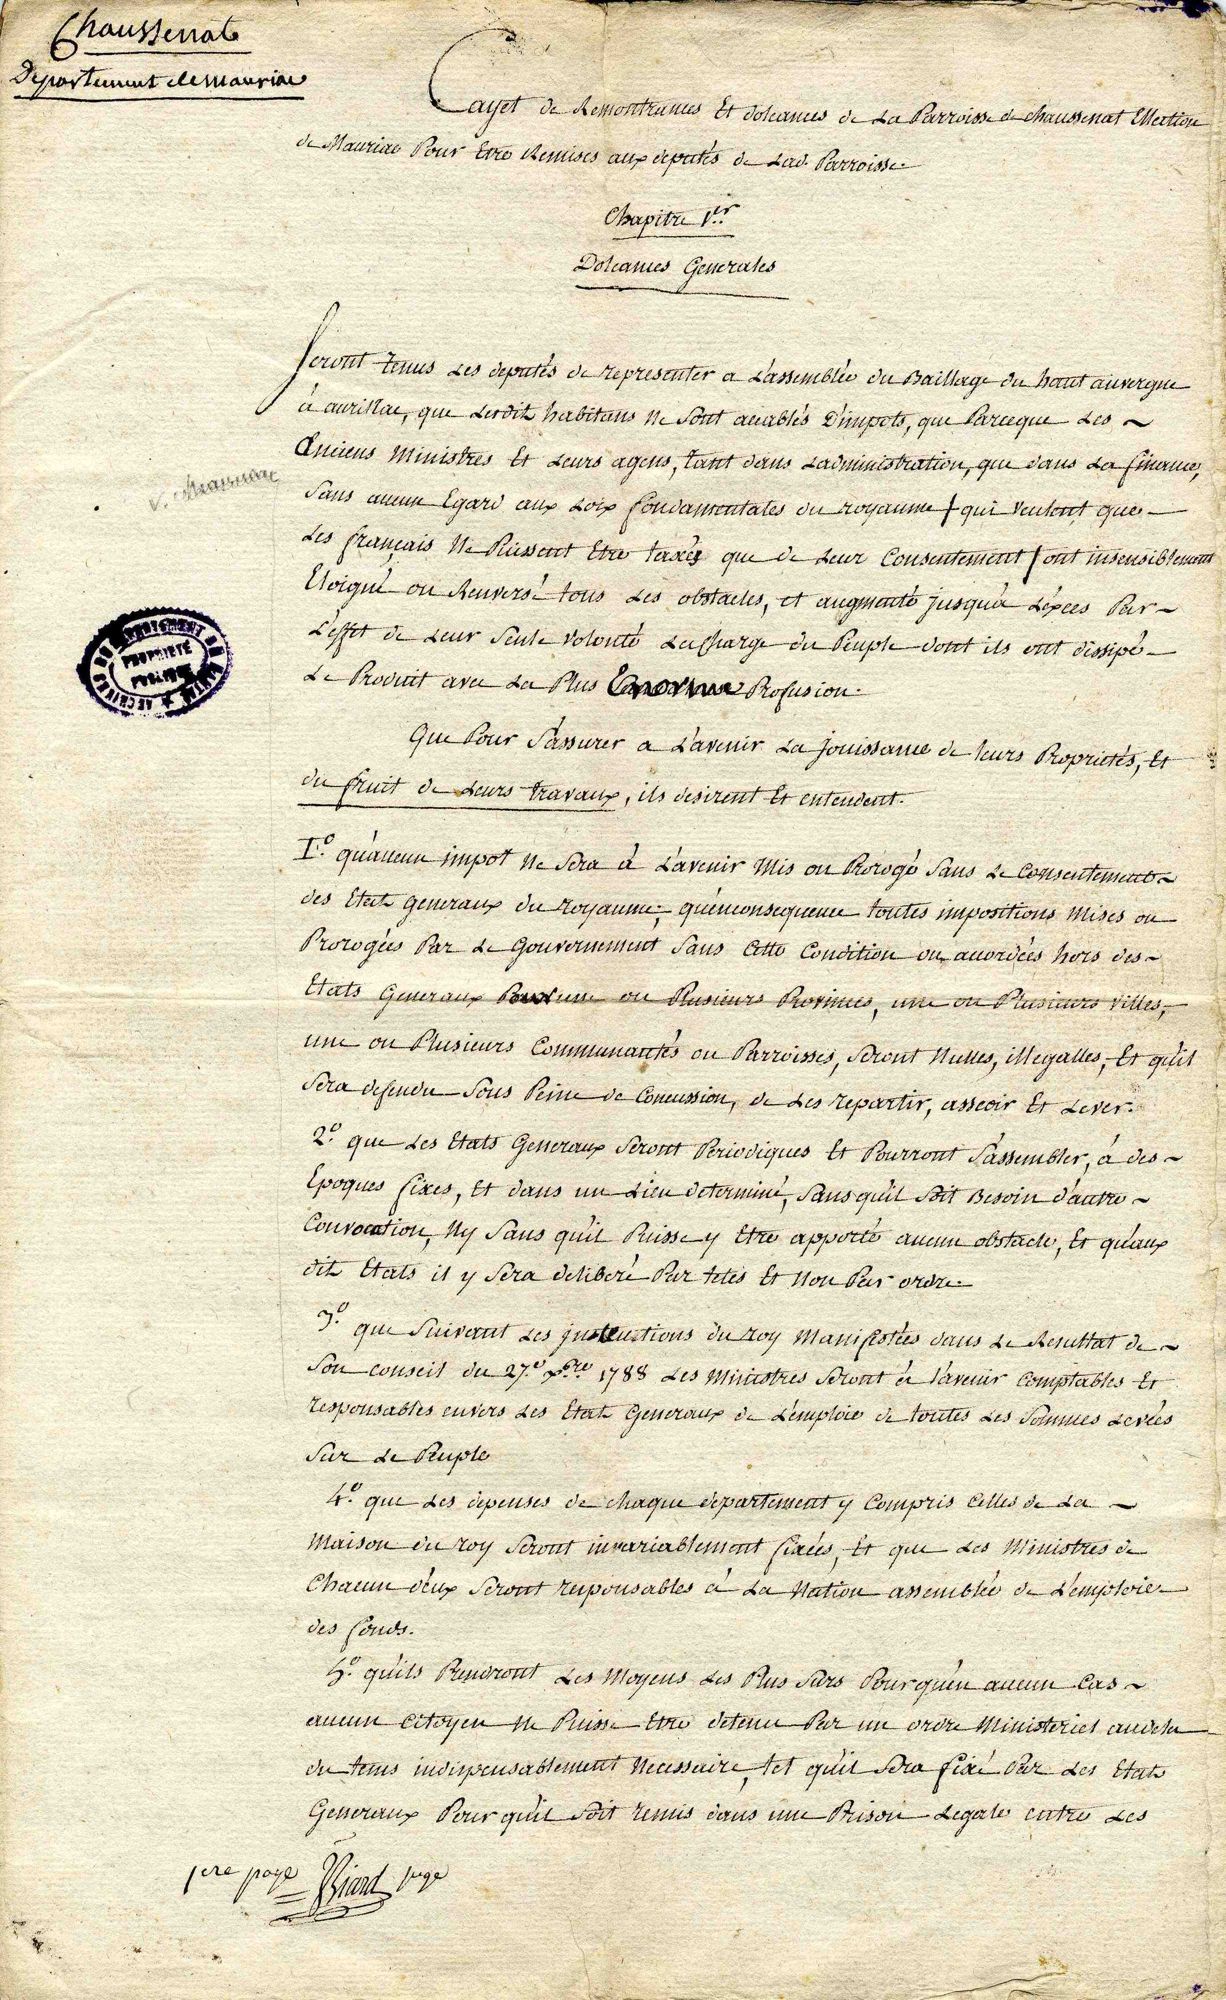 Chaussenat
Departement de mauriac
Cayet de Remontrances Et doleances de La Parroisse de chaussenat Ellection
de Mauriac Pour Etre Remises aux deputés de Lad. Parroisse.
Chapitre 1er
Doleances Generales
Seront tenus Les deputés de representer a L'assemblée du Baillage du haut auvergne
à aurillac, que Lesdits habitans ne sont accablés D'impots, que Parceque Les ~
Anciens Ministres Et Leurs agens, tant dans L'administration, que dans La finance,
Sans aucun Egard aux Loix fondamentales du royaume / qui veulent que
Les français Ne Puissent Etre taxés que de Leur Consentement / ont insensiblement
Eloigné ou Renversé tous Les obstacles, et augmenté jusqu'à L'éxces Par ~
L'effet de Leur Seule volonté La Charge du Peuple dont ils ont dissipé
Le Produit avec La Plus Enorme Profusion.
V. Mauriac
ARCHIVES DU DEPARTEMENT DU CANTAL
PROPRIÉTÉ PUBLIQUE
Que Pour S'assurer a L'avenir La jouissance de leurs Proprietés, Et
du fruit de Leurs travaux, ils desirent Et entendent.
1.º qu'aucun impot Ne Sera à L'avenir Mis ou Prorogé Sans Le Consentement ~
des Etats generaux du royaume; qu'enconsequence toutes impositions mises ou
Prorogées Par Le Gouvernement Sans Cette Condition ou accordées hors des ~
Etats Generaux Par une ou Plusieurs Provinces, une ou Plusieurs villes,
une ou Plusieurs Communautés ou Parroisses, Seront Nulles, illegalles, Et qu'il
Sera defendu Sous Peine de Concussion, de Les repartir, asseoir Et Lever.
2.º que Les Etats Generaux Seront Periodiques Et Pourront S'assembler, à des ~
Epoques fixes, Et dans un Lieu determiné, Sans qu'il Soit Besoin d'autre ~
Convocation, Ny Sans qu'il Puisse y Etre apporté aucun obstacle, Et qu'aux
dits Etats il y Sera deliberé Par tetes Et Non Par ordre.
3.º que Suivant Les instructions du roy Manifestées dans Le Resultat de ~
Son conseil du 27.e xbre 1788 Les Ministres Seront à l'avenir Comptables Et
responsables envers Les Etats Generaux de L'emploie de toutes Les Sommes Levées
Sur Le Peuple
4.º que Les depenses de chaque departement y Compris Celles de La ~
Maison du roy Seront invariablement fixées, Et que Les Ministres de
Chacun d'eux Seront responsables à La Nation assemblée de L'emploie
des fonds.
5.º qu'ils Prendront Les Moyens Les Plus Surs Pour qu'en aucun Cas ~
aucun Citoyen Ne Puisse Etre detenu Par un ordre Ministeriel audela
du tems indispensablement Necessaire, tel qu'il Sera fixé Par Les Etats
Generaux Pour qu'il Soit remis dans une Prison Legale entre Les
1ere page Biard juge